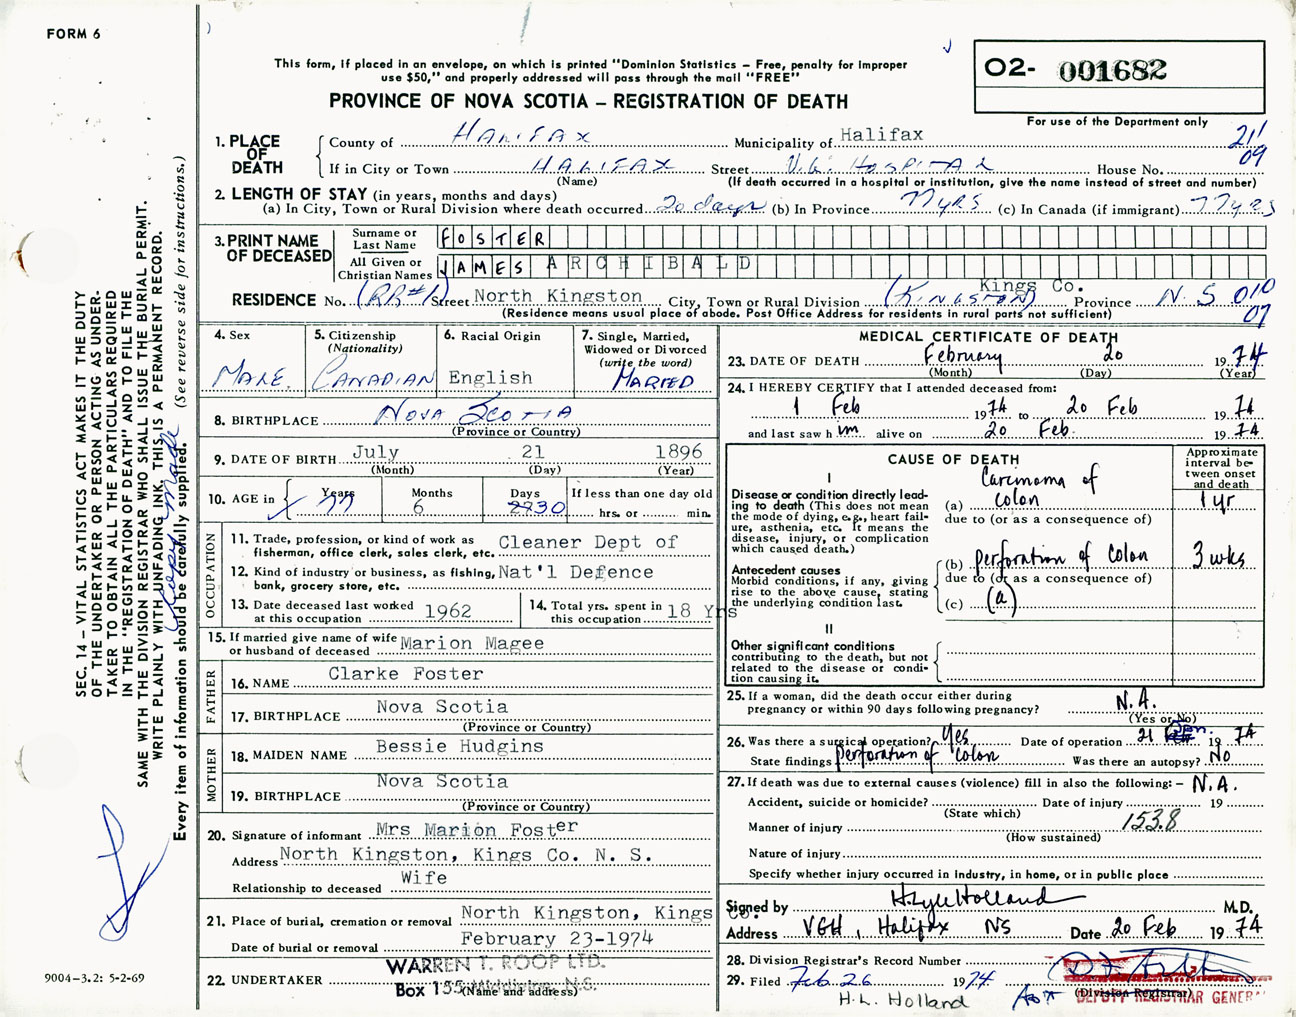 FORM 6
This form, if placed in an envelope, on which is printed "Dominion Statistics – Free, penalty for improper
use $50," and properly addressed will pass through the mail "FREE"
PROVINCE OF NOVA SCOTIA – REGISTRATION OF DEATH
O2- 001682
For use of the Department only
21
09
1. PLACE OF DEATH County of HALIFAX Municipality of Halifax
If in City or Town HALIFAX Street V.G. HOSPITAL House No.
(Name) (If death occurred in a hospital or institution, give the name instead of street and number)
2. LENGTH OF STAY (in years, months and days)
(a) In City, Town or Rural Division where death occurred 20 days (b) In Province 77 yrs (c) In Canada (if immigrant) 77 yrs
3. PRINT NAME OF DECEASED
Surname or Last Name FOSTER
All Given or Christian Names JAMES ARCHIBALD
Kings Co.
RESIDENCE No. (RR#1) Street North Kingston City, Town or Rural Division (KINGSTON) Province N.S 010
07
(Residence means usual place of abode. Post Office Address for residents in rural parts not sufficient)
4. Sex
MALE.
5. Citizenship
(Nationality)
CANADIAN
6. Racial Origin
English
7. Single, Married,
Widowed or Divorced
(write the word)
MARRIED
8. BIRTHPLACE NOVA SCOTIA
(Province or Country)
9. DATE OF BIRTH July 21 1896
(Month) (Day) (Year)
10. AGE in Years Months Days If less than one day old
77 6 30 hrs. or min.
OCCUPATION
11. Trade, profession, or kind of work as Cleaner Dept of
fisherman, office clerk, sales clerk, etc.
12. Kind of industry or business, as fishing, Nat'l Defence
bank, grocery store, etc.
13. Date deceased last worked
at this occupation 1962
14. Total yrs. spent in
this occupation 18 Yrs
15. If married give name of wife
or husband of deceased Marion Magee
FATHER
16. NAME Clarke Foster
17. BIRTHPLACE Nova Scotia
(Province or Country)
MOTHER
18. MAIDEN NAME Bessie Hudgins
19. BIRTHPLACE Nova Scotia
(Province or Country)
20. Signature of informant Mrs Marion Foster
Address North Kingston, Kings Co. N. S.
Relationship to deceased Wife
21. Place of burial, cremation or removal North Kingston, Kings Co.
Date of burial or removal February 23-1974
22. UNDERTAKER WARREN T. ROOP LTD.
Box 155 Middleton, N.S.
(Name and address)
MEDICAL CERTIFICATE OF DEATH
23. DATE OF DEATH February 20 1974
(Month) (Day) (Year)
24. I HEREBY CERTIFY that I attended deceased from:
1 Feb 1974 to 20 Feb 1974
and last saw him alive on 20 Feb. 1974
CAUSE OF DEATH
Approximate
interval be-
tween onset
and death
I
Disease or condition directly lead-
ing to death (This does not mean
the mode of dying, e.g., heart fail-
ure, asthenia, etc. It means the
disease, injury, or complication
which caused death.)
(a) Carcinoma of colon 1 yr
due to (or as a consequence of)
Antecedent causes
Morbid conditions, if any, giving
rise to the above cause, stating
the underlying condition last.
(b) perforation of colon 3 wks
due to (or as a consequence of)
(c) (a)
II
Other significant conditions
contributing to the death, but not
related to the disease or condi-
tion causing it.
25. If a woman, did the death occur either during
pregnancy or within 90 days following pregnancy? N.A.
(Yes or No)
26. Was there a surgical operation? Yes Date of operation 21 Jan 1974
State findings perforation of colon Was there an autopsy? No
27. If death was due to external causes (violence) fill in also the following: – N.A.
Accident, suicide or homicide? Date of injury 19
(State which)
Manner of injury 153.8
(How sustained)
Nature of injury
Specify whether injury occurred in industry, in home, or in public place
Signed by H. Lyle Holland M.D.
Address VGH, Halifax NS Date 20 Feb 1974
28. Division Registrar's Record Number
29. Filed Feb. 26 1974
(Division Registrar)
DEPUTY REGISTRAR GENERAL
H.L. Holland
SEC. 14 – VITAL STATISTICS ACT MAKES IT THE DUTY
OF THE UNDERTAKER OR PERSON ACTING AS UNDER-
TAKER TO OBTAIN ALL THE PARTICULARS REQUIRED
IN THE "REGISTRATION OF DEATH" AND TO FILE THE
SAME WITH THE DIVISION REGISTRAR WHO SHALL ISSUE THE BURIAL PERMIT.
WRITE PLAINLY WITH UNFADING INK. THIS IS A PERMANENT RECORD.
Every item of information should be carefully supplied. (See reverse side for instructions.)
Copy made
9004-3.2: 5-2-69